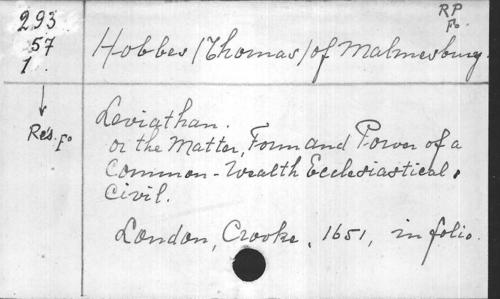 293
57
1.
RP
Fo.
Hobbes (Thomas) of Malmesbury.
↓
Rés. Fo
Leviathan.
or the Matter, Form and Power of a
Common-Wealth Ecclesiastical,
Civil.
London, Crooke, 1651, in folio.